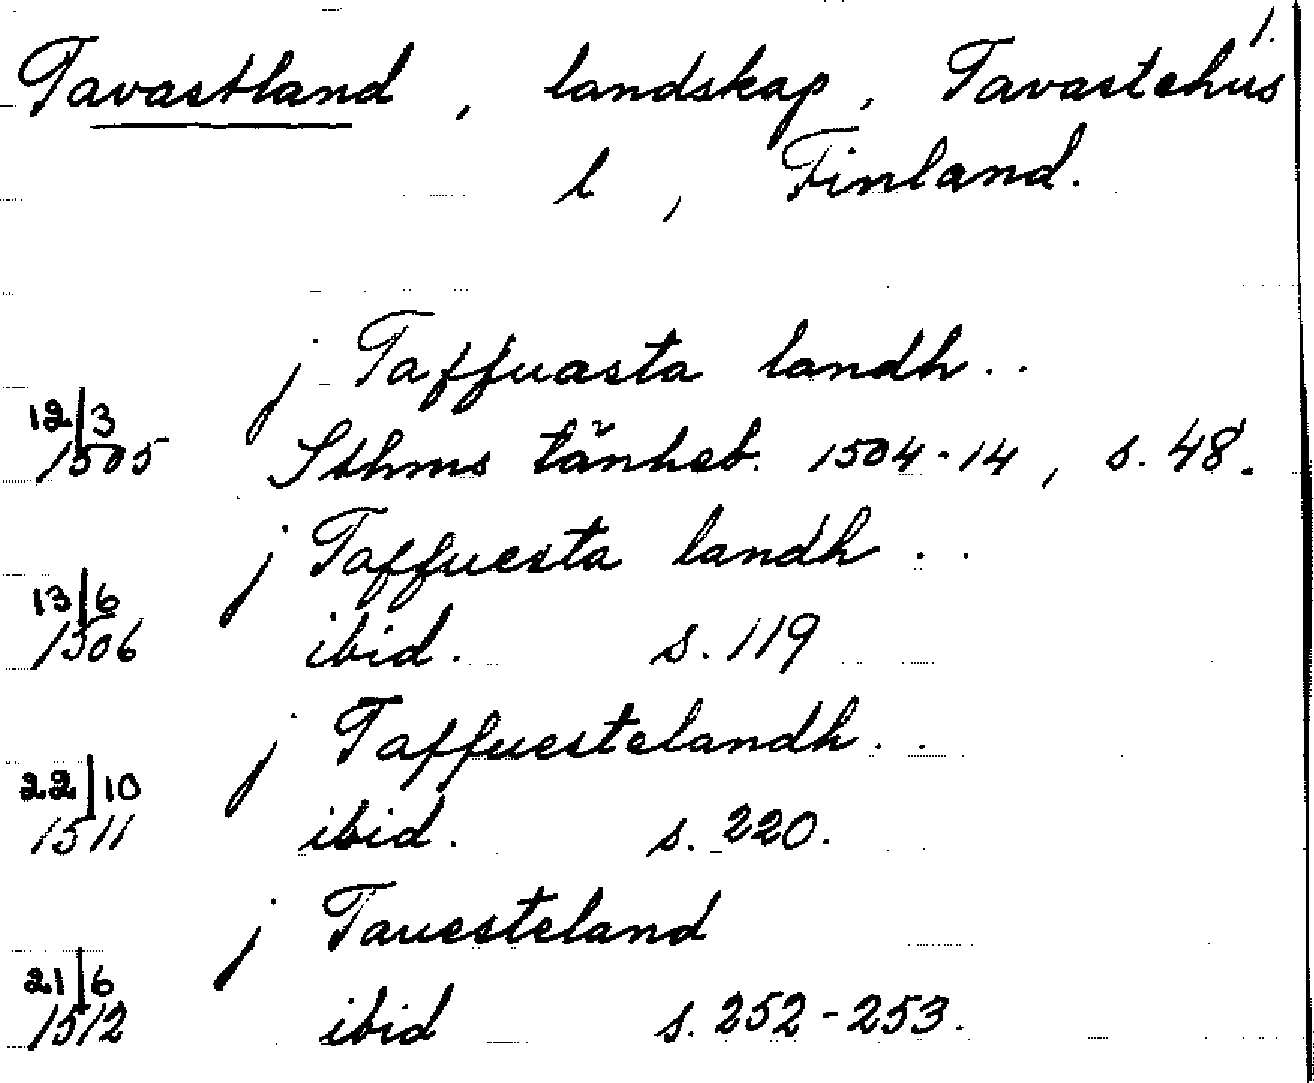 1.
Tavastland, landskap, Tavastehus
l, Finland.
j Taffuasta landh..
12/3
1505 Sthms tänkeb. 1504-14, s. 48.
j Taffuesta landh..
13/6
1506 ibid. s. 119
j Taffuestelandh..
22/10
1511 ibid. s. 220.
j Tauesteland
21/6
1512 ibid s. 252-253.